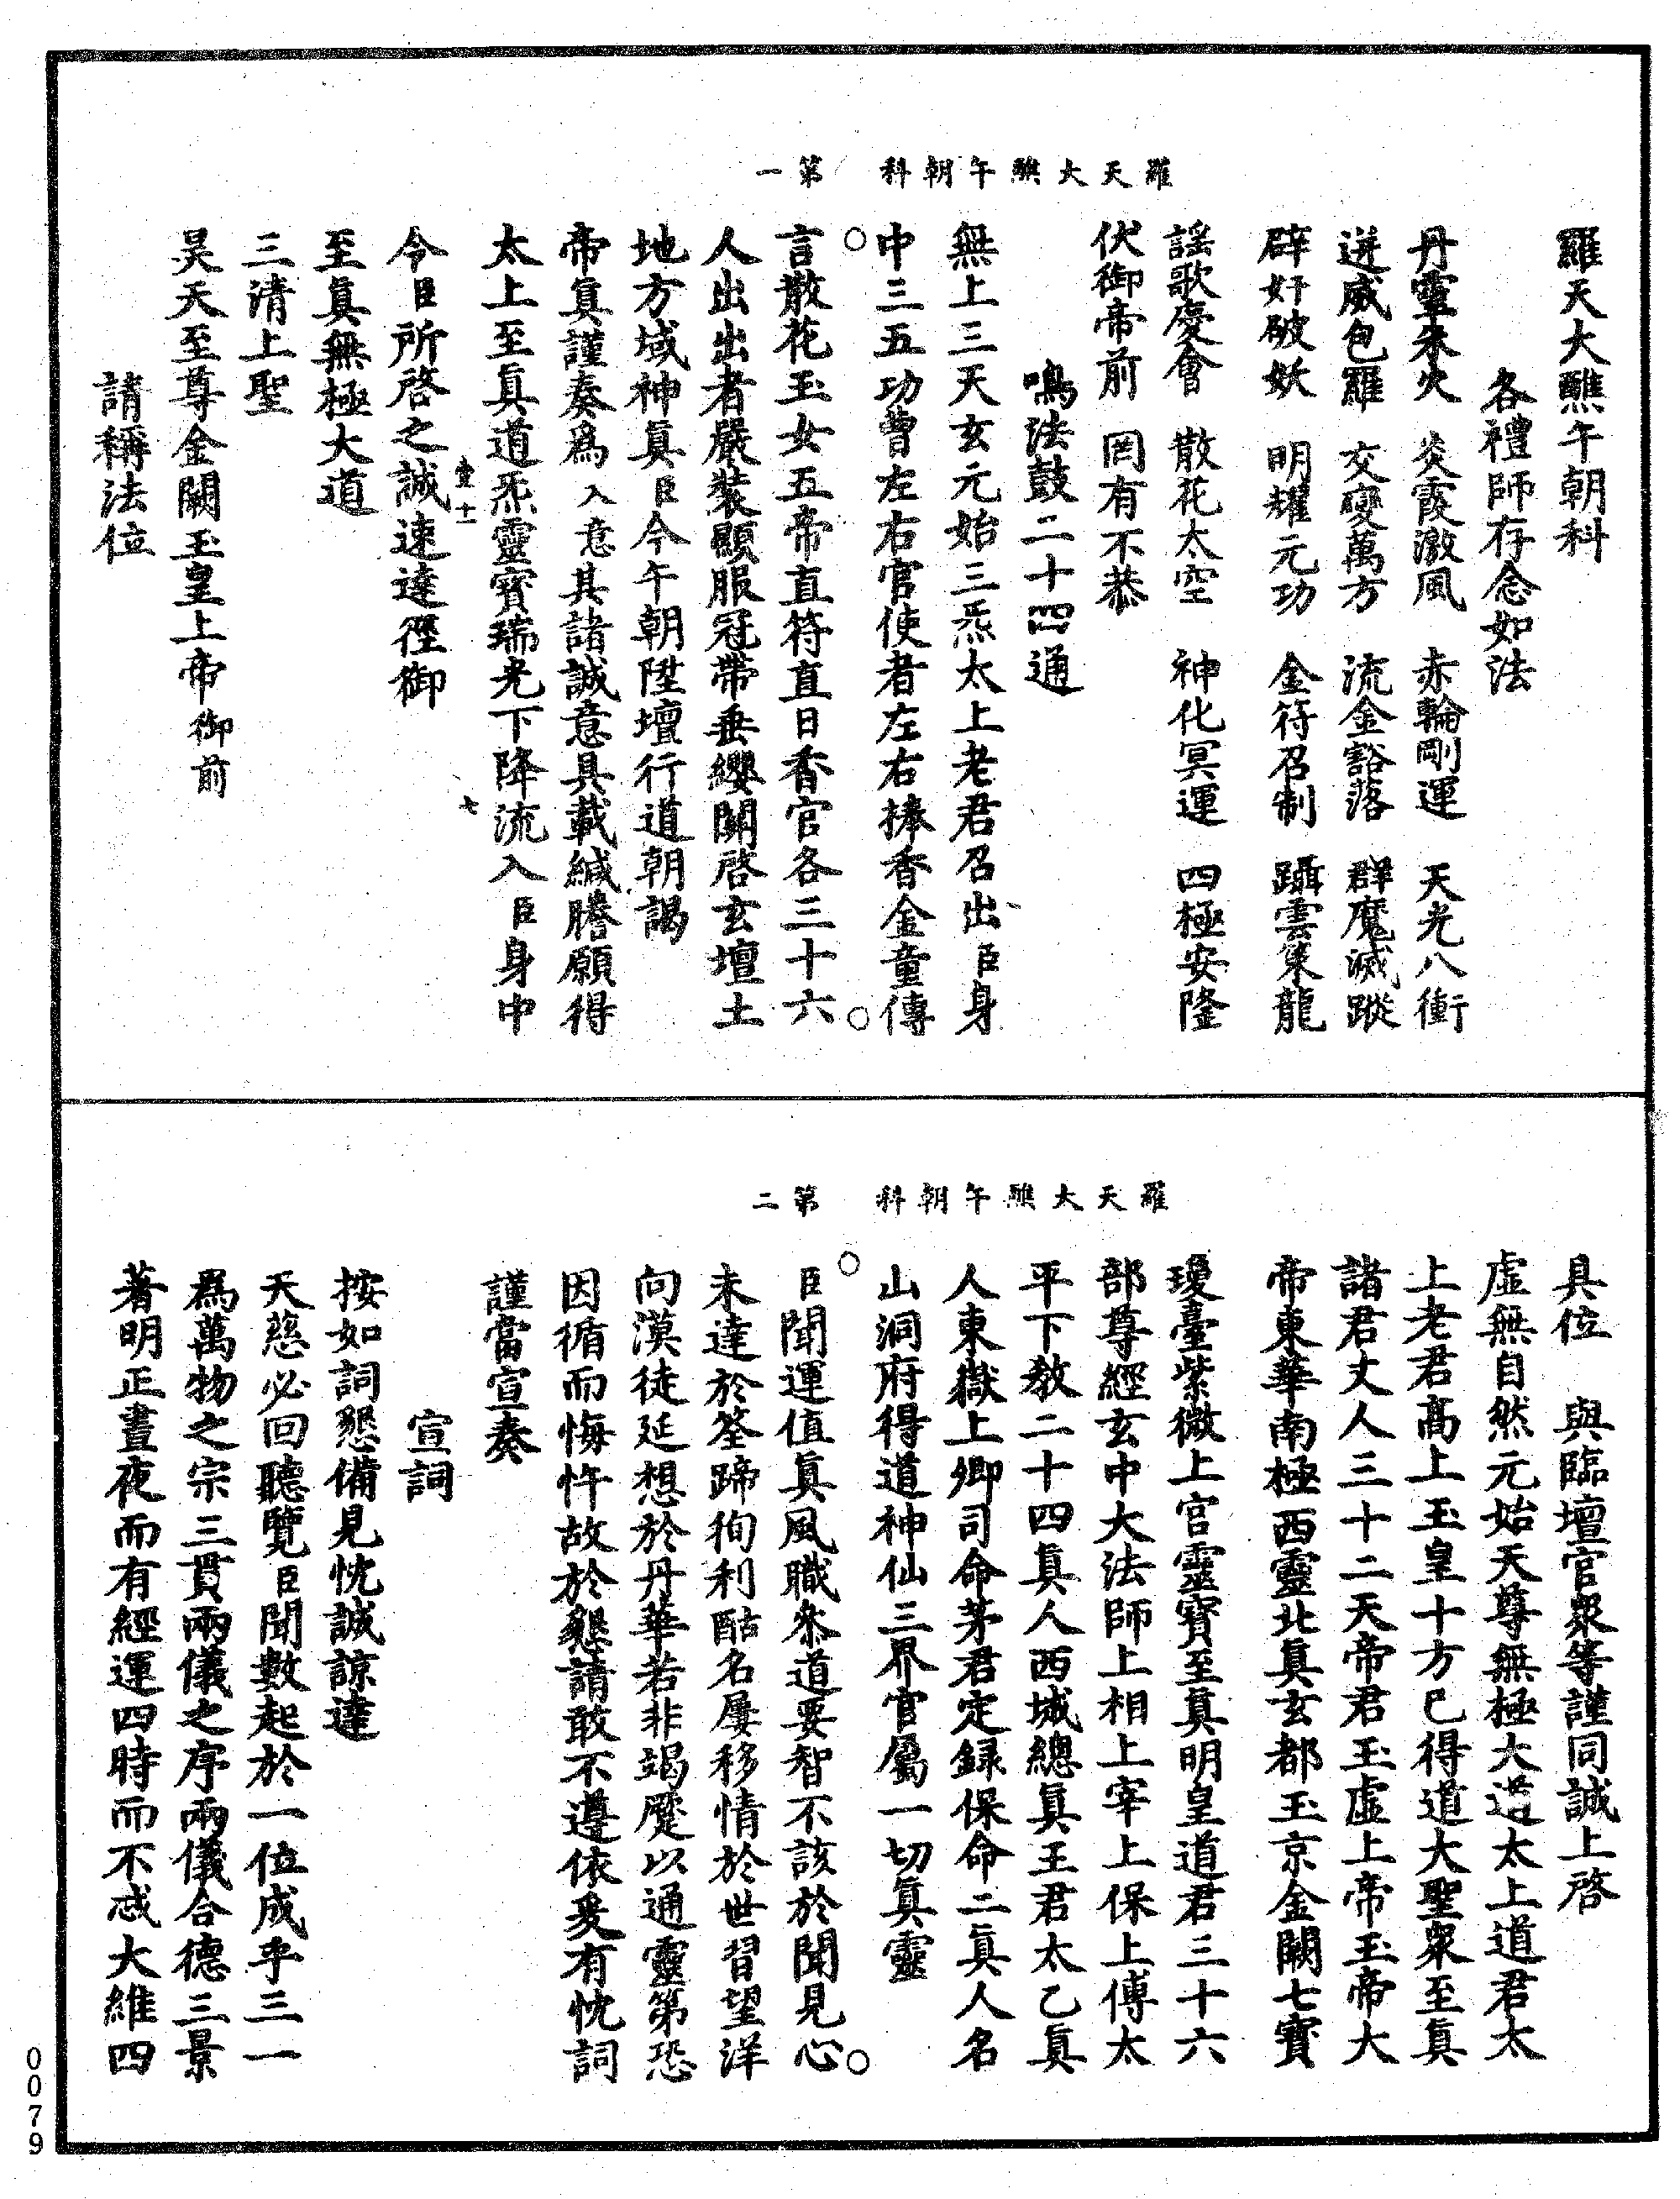 羅天大醮午朝科　第一
羅天大醮午朝科
各禮師存念如法
丹靈朱火　炎霞激風　赤輪剛運　天光八衝
迸威包羅　交變萬方　流金豁落　群魔滅蹤
辟奸破妖　明耀元功　金符召制　躡雲策龍
謡歌慶會　散花太空　神化冥運　四極安隆
伏御帝前　罔有不恭
鳴法鼓二十四通
無上三天玄元始三炁太上老君召出臣身
中三五功曹左右官使者左右捧香金童傳
言散花玉女五帝直符直日香官各三十六
人出出者嚴裝顯服冠帶垂纓關啓玄壇土
地方域神眞臣今午朝陞壇行道朝謁
帝眞謹奏爲入意其諸誠意具載緘謄願得
太上至眞道炁靈寶瑞光下降流入臣身中
壹十一　七
今臣所啓之誠速達徑御
至眞無極大道
三清上聖
昊天至尊金闕玉皇上帝御前
請稱法位
羅天大醮午朝科　第二
具位　與臨壇官衆等謹同誠上啓
虛無自然元始天尊無極大道太上道君太
上老君高上玉皇十方已得道大聖衆至眞
諸君丈人三十二天帝君玉虛上帝玉帝大
帝東華南極西靈北眞玄都玉京金闕七寶
瓊臺紫微上宮靈寶至眞明皇道君三十六
部尊經玄中大法師上相上宰上保上傅太
平下教二十四眞人西城總眞王君太乙眞
人東嶽上卿司命茅君定録保命二眞人名
山洞府得道神仙三界官屬一切眞靈
臣聞運值眞風職叅道要智不該於聞見心
未達於筌蹄徇利酤名屢移情於世習望洋
向漠徒延想於丹華若非竭蹷以通靈第恐
因循而悔忤故於懇請敢不遵依爰有忱詞
謹當宣奏
宣詞
按如詞懇備見忱誠諒達
天慈必回聽覽臣聞數起於一位成乎三一
爲萬物之宗三貫兩儀之序兩儀合德三景
著明正晝夜而有經運四時而不忒大維四
0079